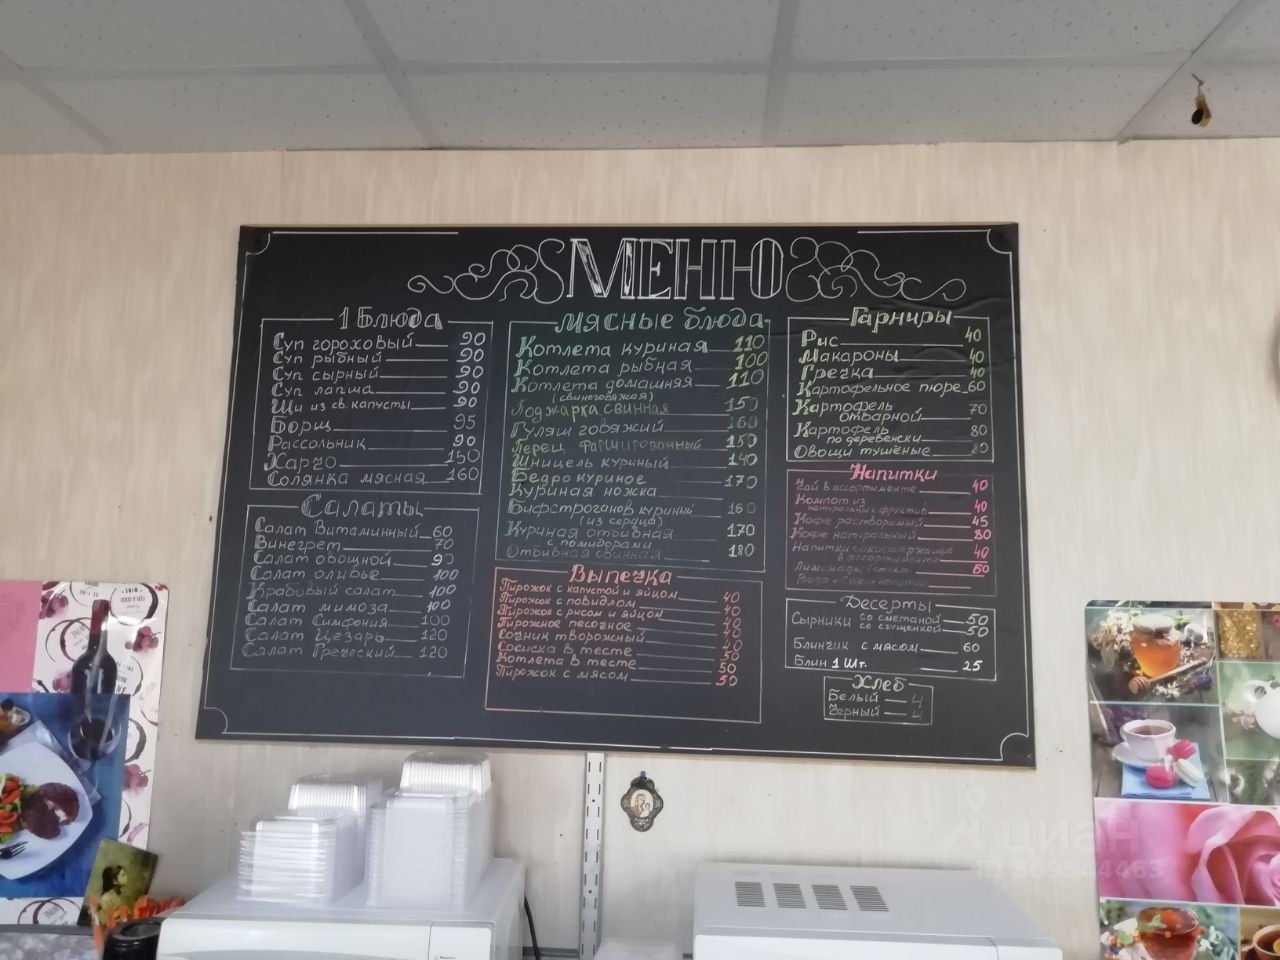 МЕНЮ
1 Блюда
Суп гороховый 90
Суп рыбный 90
Суп сырный 90
Суп лапша 90
Щи из св. капусты 90
Борщ 95
Рассольник 90
Харчо 150
Солянка мясная 160
Салаты
Салат Витаминный 60
Винегрет 70
Салат овощной 90
Салат оливье 100
Крабовый салат 100
Салат мимоза 100
Салат Симфония 100
Салат Цезарь 120
Салат Греческий 120
Мясные блюда
Котлета куриная 110
Котлета рыбная 100
Котлета домашняя 110
(свиноговяжая)
Поджарка свинная 150
Гуляш говяжий 160
Перец фаршированный 150
Шницель куриный 140
Бедро куриное 170
Куриная ножка
Бифстроганов куриный 160
(из сердца)
Куриная отбивная 170
с помидорами
Отбивная свинная 180
Выпечка
Пирожок с капустой и яйцом 40
Пирожок с повидлом 40
Пирожок с рисом и яйцом 40
Пирожное песочное 40
Сочник творожный 40
Сосиска в тесте 50
Котлета в тесте 50
Пирожок с мясом 50
Гарниры
Рис 40
Макароны 40
Гречка 40
Картофельное пюре 60
Картофель
отварной 70
Картофель 80
по деревенски
Овощи тушёные 80
Напитки
Чай в ассортименте 40
Компот из
натуральных фруктов 40
Кофе растворимый 45
Кофе натуральный 80
Напитки сокосодержащие
в ассортименте 40
Лимонады 60
Десерты
Сырники со сметаной 50
со сгущенкой 50
Блинчик с мясом 60
Блин 1 шт. 25
Хлеб
Белый 4
Черный 4
циан
ID 309544463